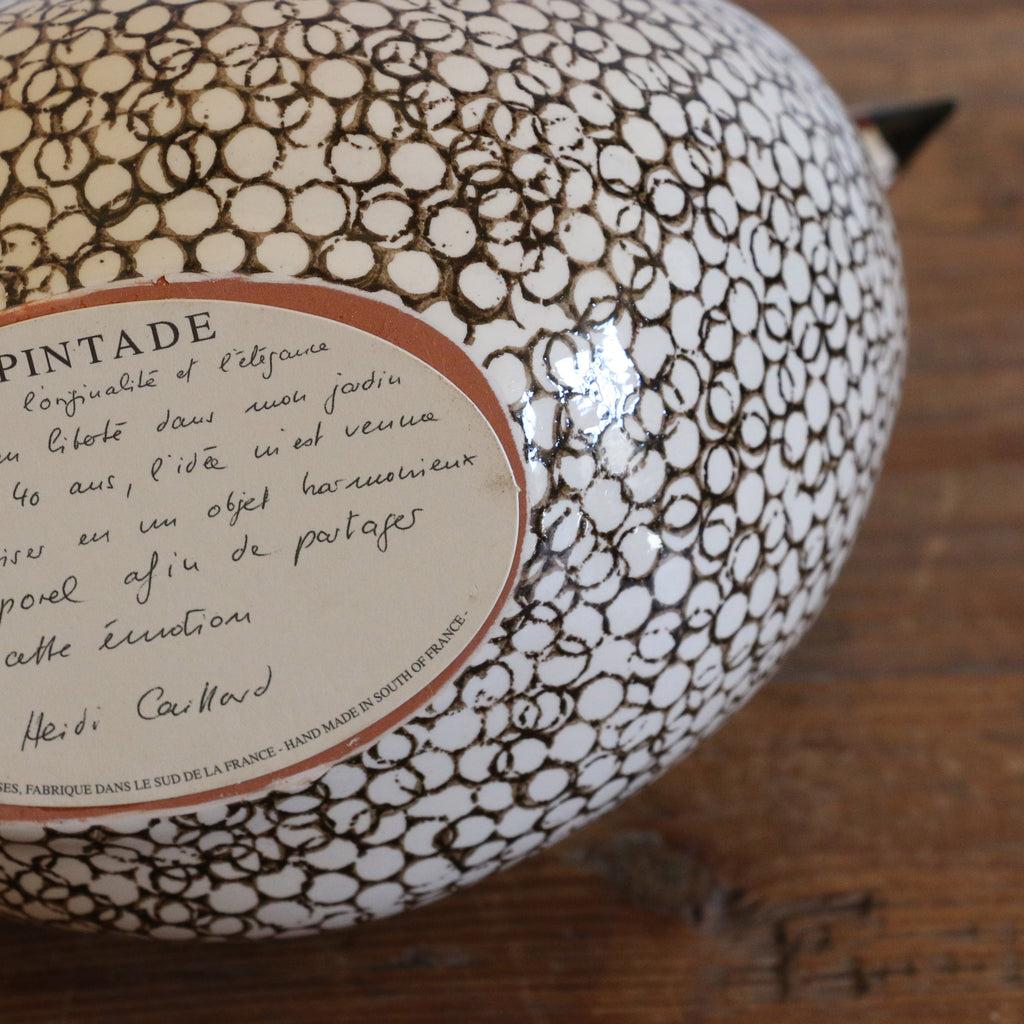 PINTADE
l'originalité et l'élégance
liberté dans mon jardin
40 ans, l'idée m'est venue
en un objet harmonieux
afin de partager
cette émotion
Heidi Caillard
SES, FABRIQUE DANS LE SUD DE LA FRANCE - HAND MADE IN SOUTH OF FRANCE -